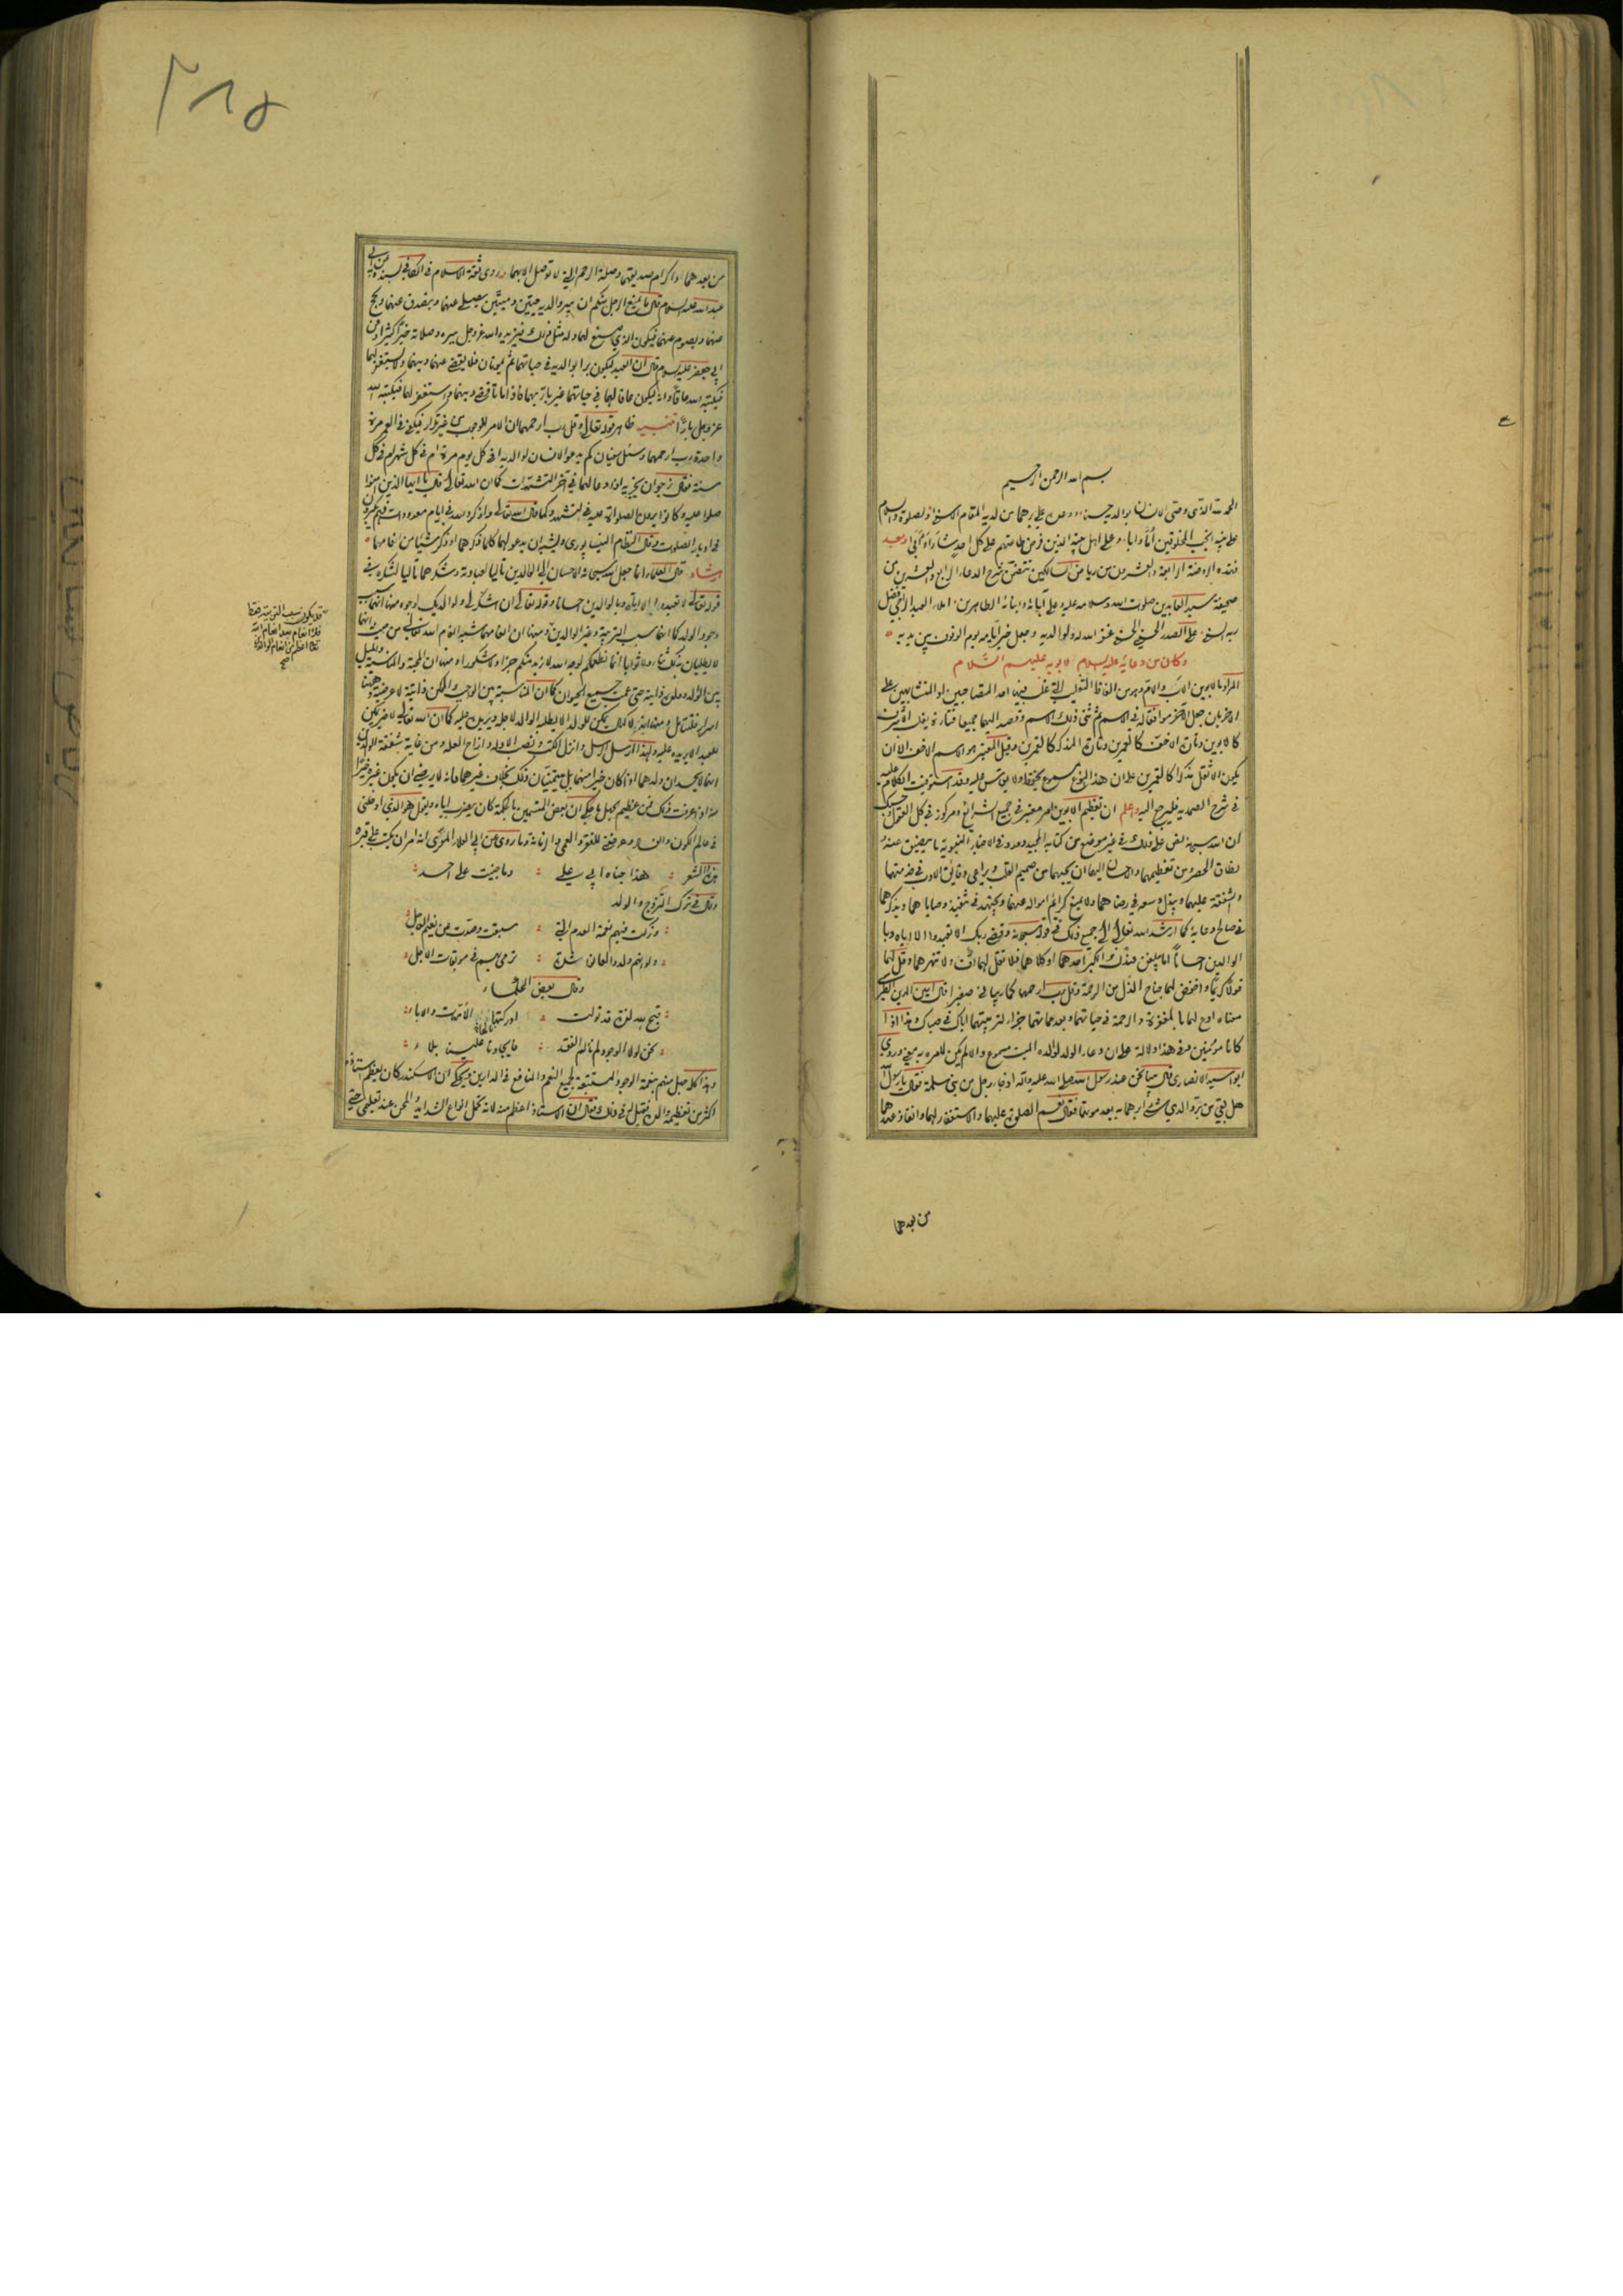 بسم الله الرحمن الرحيم
الحمد لله الذي وصى الانسان بوالديه حسنا ووعد على برهما من لديه المقام الاسنى والصلوة والسلام
على نبيه انجب المخلوقين أمّا وابا وعلى اهل بيته الذين فرض طاعتهم على كل احد شاء او أبى وبعد
فهذه الروضة الرابعة والعشرون من رياض السالكين تتضمن شرح الدعاء الرابع والعشرين من
صحيفة سيد العابدين صلوات الله وسلامه عليه وعلى آبائه وابنائه الطاهرين املاء العبد الراجي فضل
ربه السني على الصدر الحسيني الحسني غفر الله له ولوالديه وجعل خير أيامه يوم الوقوف بين يديه
وكان من دعائه عليه السلام لابويه عليهم السلام
المراد بالابوين الاب والام وهو من الفاظ التغليب التي غلب فيها احد المتصاحبين او المتشابهين على
الآخر بان جعل الآخر موافقا له في الاسم ثم ثنى ذلك الاسم وقصد اليهما جميعا فتارة يغلب الأشرف
كالابوين وتارة الاخف كالعمرين وتارة المذكر كالقمرين وقيل المعتبر هو الاسم الاخف الا ان
يكون الاثقل مذكرا كالقمرين على ان هذا النوع مسموع يحفظ ولا يقاس عليه وقد استوفيت الكلام عليه
في شرح الصمدية فليرجع اليه واعلم ان تعظيم الابوين امر معتبر في جميع الشرائع ومركوز في كل العقول وحسبك
ان الله سبحانه نص على ذلك في غير موضع من كتابه المجيد وورد في الاخبار النبوية ما يضيق عنه
نطاق الحصر من تعظيمهما والاحسان اليهما ان يحبهما من صميم القلب ويراعي دقائق الادب في خدمتهما
والشفقة عليهما ويبذل وسعه في رضاهما ولا يمنع كرائم امواله عنهما ويجتهد في تنفيذ وصاياهما ويذكرهما
في صالح دعائه كما ارشد الله تعالى الى جميع ذلك في قوله سبحانه وقضى ربك الا تعبدوا الا اياه وبا
الوالدين احسانا اما يبلغن عندك الكبر احدهما او كلاهما فلا تقل لهما اف ولا تنهرهما وقل لهما
قولا كريما واخفض لهما جناح الذل من الرحمة وقل رب ارحمهما كما ربياني صغيرا قال امين الدين الطبرسي
معناه ادع لهما بالمغفرة والرحمة في حياتهما وبعد مماتهما جزاء لتربيتهما اياك في صباك وهذا اذا
كانا مؤمنين وفي هذا دلالة على ان دعاء الولد لوالده الميت مسموع والا لم يكن للامر به معنى وروى
ابو اسيد الانصاري قال بينا نحن عند رسول الله صلى الله عليه وآله اذ جاء رجل من بني سلمة فقال يا رسول الله
هل بقي من بر والدي شيء أبرهما به بعد موتهما فقال نعم الصلوة عليهما والاستغفار لهما وانفاذ عهدهما
من بعدهما
٢٨٥
من بعدهما واكرام صديقهما وصلة الرحم التي لا توصل الا بهما وروى ثقة الاسلام في الكافي بسنده عن ابي
عبد الله عليه السلام قال ما يمنع الرجل منكم ان يبر والديه حيين وميتين يصلي عنهما ويتصدق عنهما ويحج
عنهما ويصوم عنهما فيكون الذي صنع لهما وله مثل ذلك فيزيده الله عز وجل ببره وصلاته خيرا كثيرا وعن
ابي جعفر عليه السلام قال ان العبد ليكون برا بوالديه في حياتهما ثم يموتان فلا يقضي عنهما دينهما ولا يستغفر لهما
فيكتبه الله عاقا وانه ليكون عاقا لهما في حياتهما غير بار بهما فاذا ماتا قضى دينهما واستغفر لهما فيكتبه الله
عز وجل بارّا تنبيه ظاهر قوله تعالى وقل رب ارحمهما ان الامر للوجوب من غير تكرار فيكفي في العمر مرة
واحدة رب ارحمهما وسئل سفيان كم يدعو الانسان لوالديه افي كل يوم مرة ام في كل شهر ام في كل
سنة فقال نرجو ان يجزيه اذا دعا لهما في آخر التشهدات كما ان الله تعالى قال يا ايها الذين آمنوا
صلوا عليه وكانوا يرون الصلوة عليه في التشهد وكما قال الله تعالى واذكروا الله في ايام معدودات فهم يكبرون
في ادبار الصلوات وقال النظام النيسابوري ويشبه ان يدعو لهما كلما ذكرهما او ذكر شيئا من انعامهما
ارشاد قال العلماء انما جعل الله سبحانه الاحسان الى الوالدين تاليا لعبادته وشكرهما تاليا لشكره في
قوله تعالى لا تعبدوا الا اياه وبالوالدين احسانا وقوله تعالى ان اشكر لي ولوالديك لوجوه منها انهما سبب
وجود الولد كما انهما سبب التربية وغير الوالدين ومنها ان انعامهما يشبه انعام الله تعالى من حيث انهما
لا يطلبان بذلك ثناء ولا ثوابا انما نطعمكم لوجه الله لا نريد منكم جزاء ولا شكورا ومنها ان المحبة والمناسبة والميل
بين الوالد وولده ذاتية حتى عمت جميع الحيوان كما ان المناسبة بين الواجب والممكن ذاتية لا عرضية وههنا
اسرار فليتأمل ومنها انه لا كمال يمكن للولد الا يطلبه الوالد لاجله ويريده عليه كما ان الله تعالى لا خير يمكن
للعبد الا يريده عليه ولهذا ارسل الرسل وانزل الكتب ونصب الادلة وازاح العلة ومن غاية شفقة الوالدين
انهما لا يحسدان ولدهما اذا كان خيرا منهما بل يتمنيان ذلك بخلاف غيرهما فانه لا يرضى ان يكون غيره خيرا
منه اذا عرفت ذلك فمن عظيم الجهل ما حكي ان بعض المتسمين بالحكمة كان يضرب اباه ويقول هو الذي ادخلني
في عالم الكون والفساد وعرضني للفقر والعمى والزمانة وما روي عن ابي العلاء المعري انه امر ان يكتب على قبره
هذا الشعر : هذا جناه ابي علي : وما جنيت على احد
وقال في ترك التزوج والولد
وتركت فيهم نعمة العدم التي : سبقت وصدت عن نعيم العاجل
ولو انهم ولدوا لعانوا شدة : ترمي بهم في موبقات الآجل
وقال بعض الحكماء
قبح الله لذة قد تولت : ادركتها الأمهات والاباء
نحن لولا الوجود لم نالم الفقد : فايجادنا علينا بلاء
وهذا كله جهل منهم بنعمة الوجود المستتبعة لجميع النعم والمنافع في الدارين ويحكى ان الاسكندر كان يعظم استاذه
اكثر من تعظيمه والده فقيل له في ذلك فقال ان الاستاذ اعظم منه لانه تحمل انواع الشدائد والمحن عند تعليمي حتى